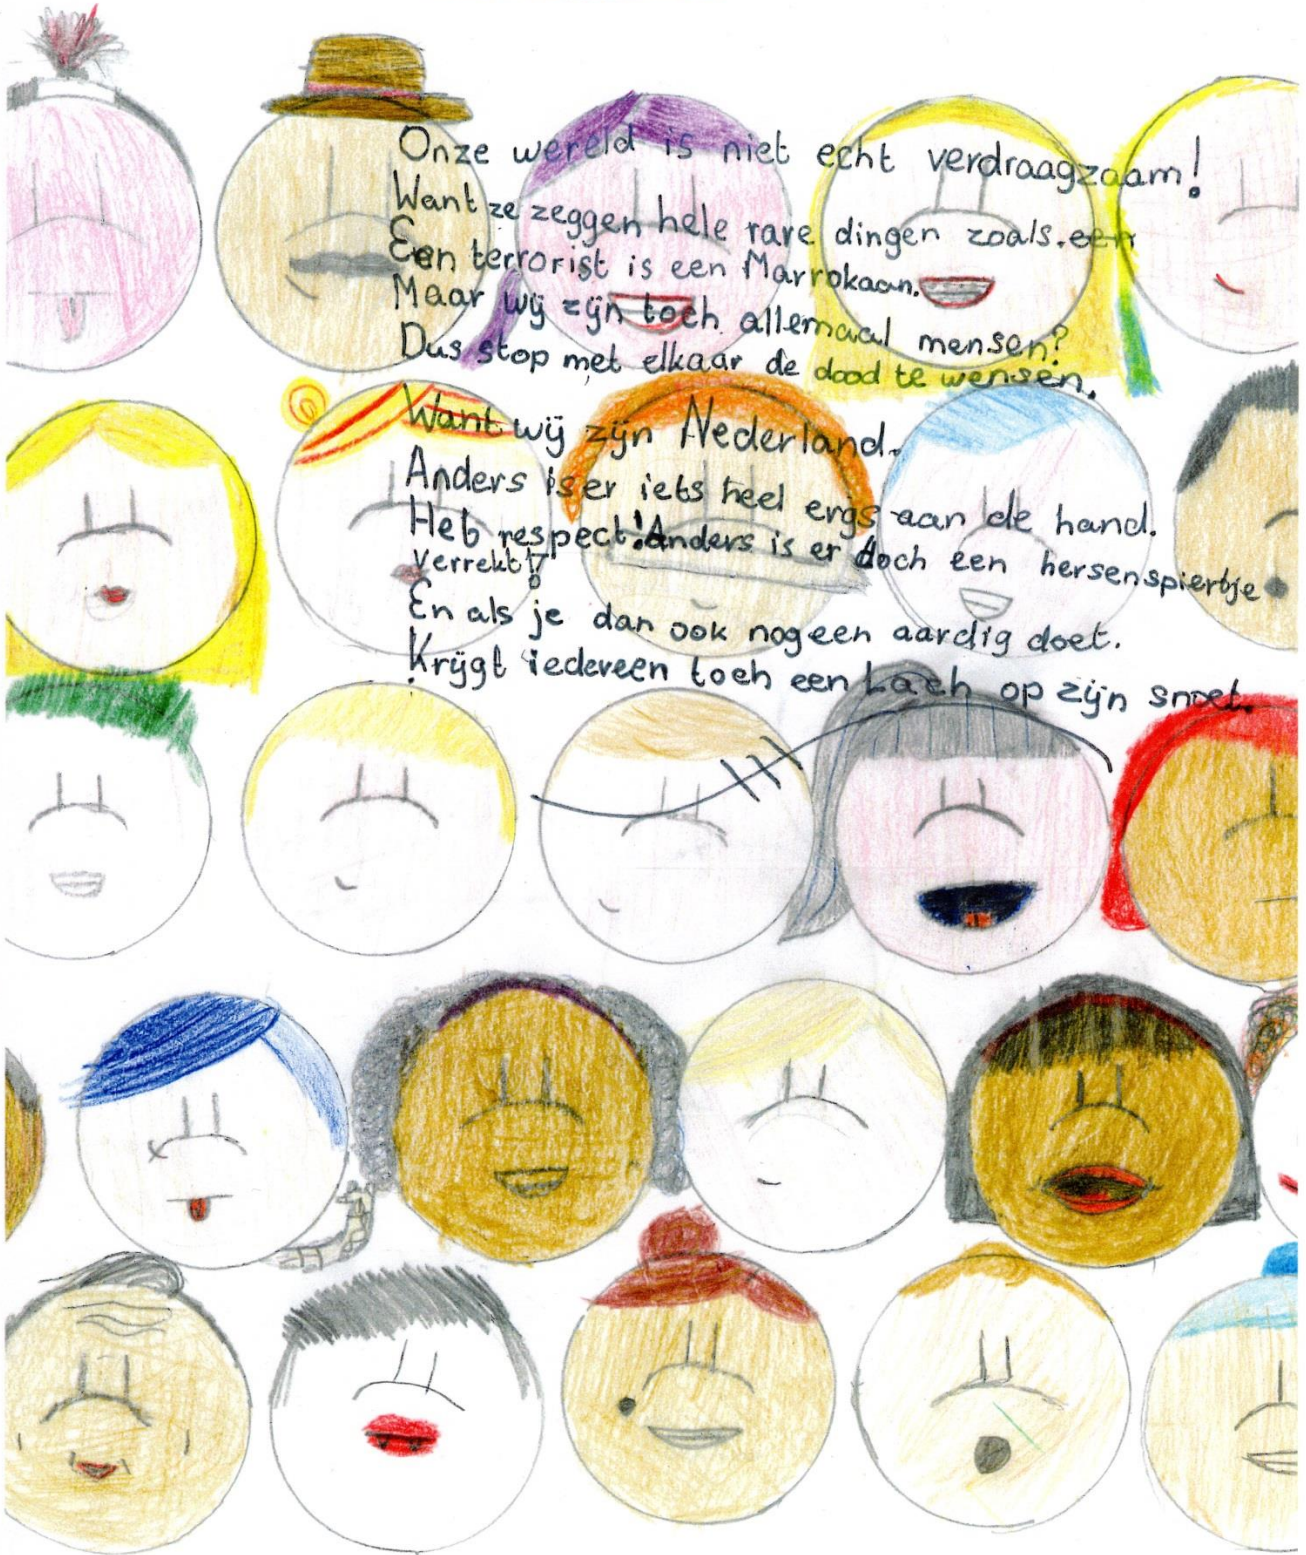 Onze wereld is niet echt verdraagzaam!
Want ze zeggen hele rare dingen zoals. een
Een terrorist is een Marrokaan.
Maar wij zijn toch allemaal mensen?
Dus stop met elkaar de dood te wensen.
Want wij zijn Nederland.
Anders is er iets heel ergs aan de hand.
Heb respect! Anders is er doch een hersenspiertje
verrekt!
En als je dan ook nog een aardig doet.
Krijgt iedereen toch een Lach op zijn snoet.